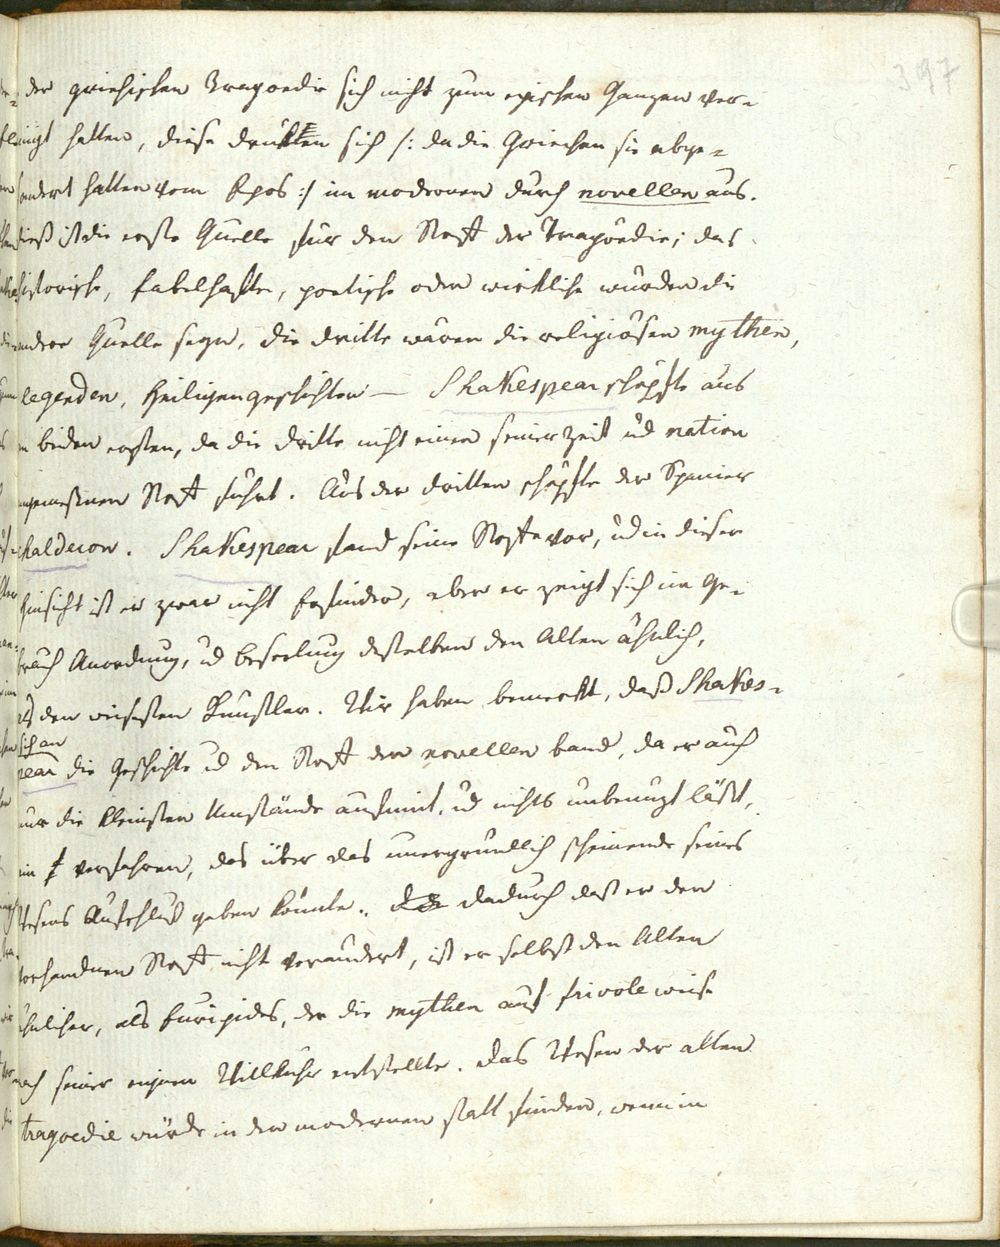 397
der griechischen Tragoedie sich nicht zum epischen Ganzen ver-
einigt hatten, diese drükten sich /: da die Griechen sie abge-
sondert hatten vom Epos :/ im modernen durch novellen aus.
dieß ist die erste Quelle für den Stoff der Tragödie; das
historische, fabelhafte, poetische oder wirkliche würden die
andere Quelle seyn, die dritte wären die religiösen mythen,
legenden, Heiligengeschichten — Shakespear schöpfte aus
den beiden ersten, da die dritte nicht einen seiner Zeit ud nation
angemeßnen Stoff führt. Aus der dritten schöpfte der Spanier
Chalderon. Shakespear fand seine Stoffe vor, ud in dieser
Hinsicht ist er zwar nicht Erfinder, aber er zeigt sich im Ge-
brauch Anordnung, ud beseelung deßelben den Alten ähnlich,
als den weisesten Künstler. Wir haben bemerkt, daß Shakes-
pear sich an die Geschichte ud den Stoff der novellen band, da er auch
nur die kleinsten Umstände aufnimt, ud nichts unbenuzt läßt,
ein verfahren, das über das unergründlich scheinende seines
Wesens Aufschluß geben könnte. dadurch daß er den
vorhandnen Stoff nicht verändert, ist er selbst den Alten
ähnlicher, als Euripides, der die mythen auf frivole weise
nach seiner eignen Willkühr entstellte. Das Wesen der alten
tragoedie würde in der modernen statt finden, wenn in